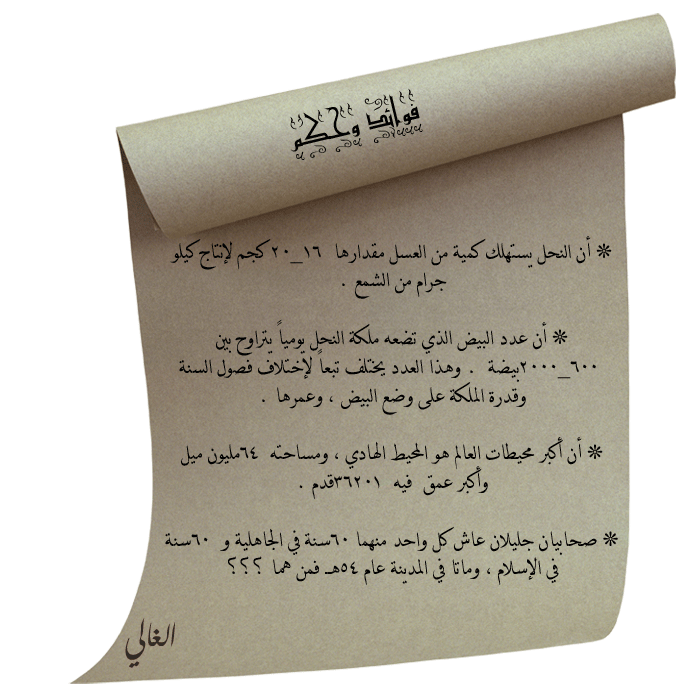 فوائد وحكم
❋ أن النحل يستهلك كمية من العسل مقدارها ١٦_٢٠ كجم لإنتاج كيلو
جرام من الشمع .
❋ أن عدد البيض الذي تضعه ملكة النحل يومياً يتراوح بين
٦٠٠_٢٠٠٠بيضة . وهذا العدد يختلف تبعاً لإختلاف فصول السنة
وقدرة الملكة على وضع البيض ، وعمرها .
❋ أن أكبر محيطات العالم هو المحيط الهادي ، ومساحته ٦٤مليون ميل
وأكبر عمق فيه ٣٦٢٠١قدم .
❋ صحابيان جليلان عاش كل واحد منهما ٦٠سنة في الجاهلية و ٦٠سنة
في الإسلام ، وماتا في المدينة عام ٥٤هـ فمن هما ؟؟؟
الغالي